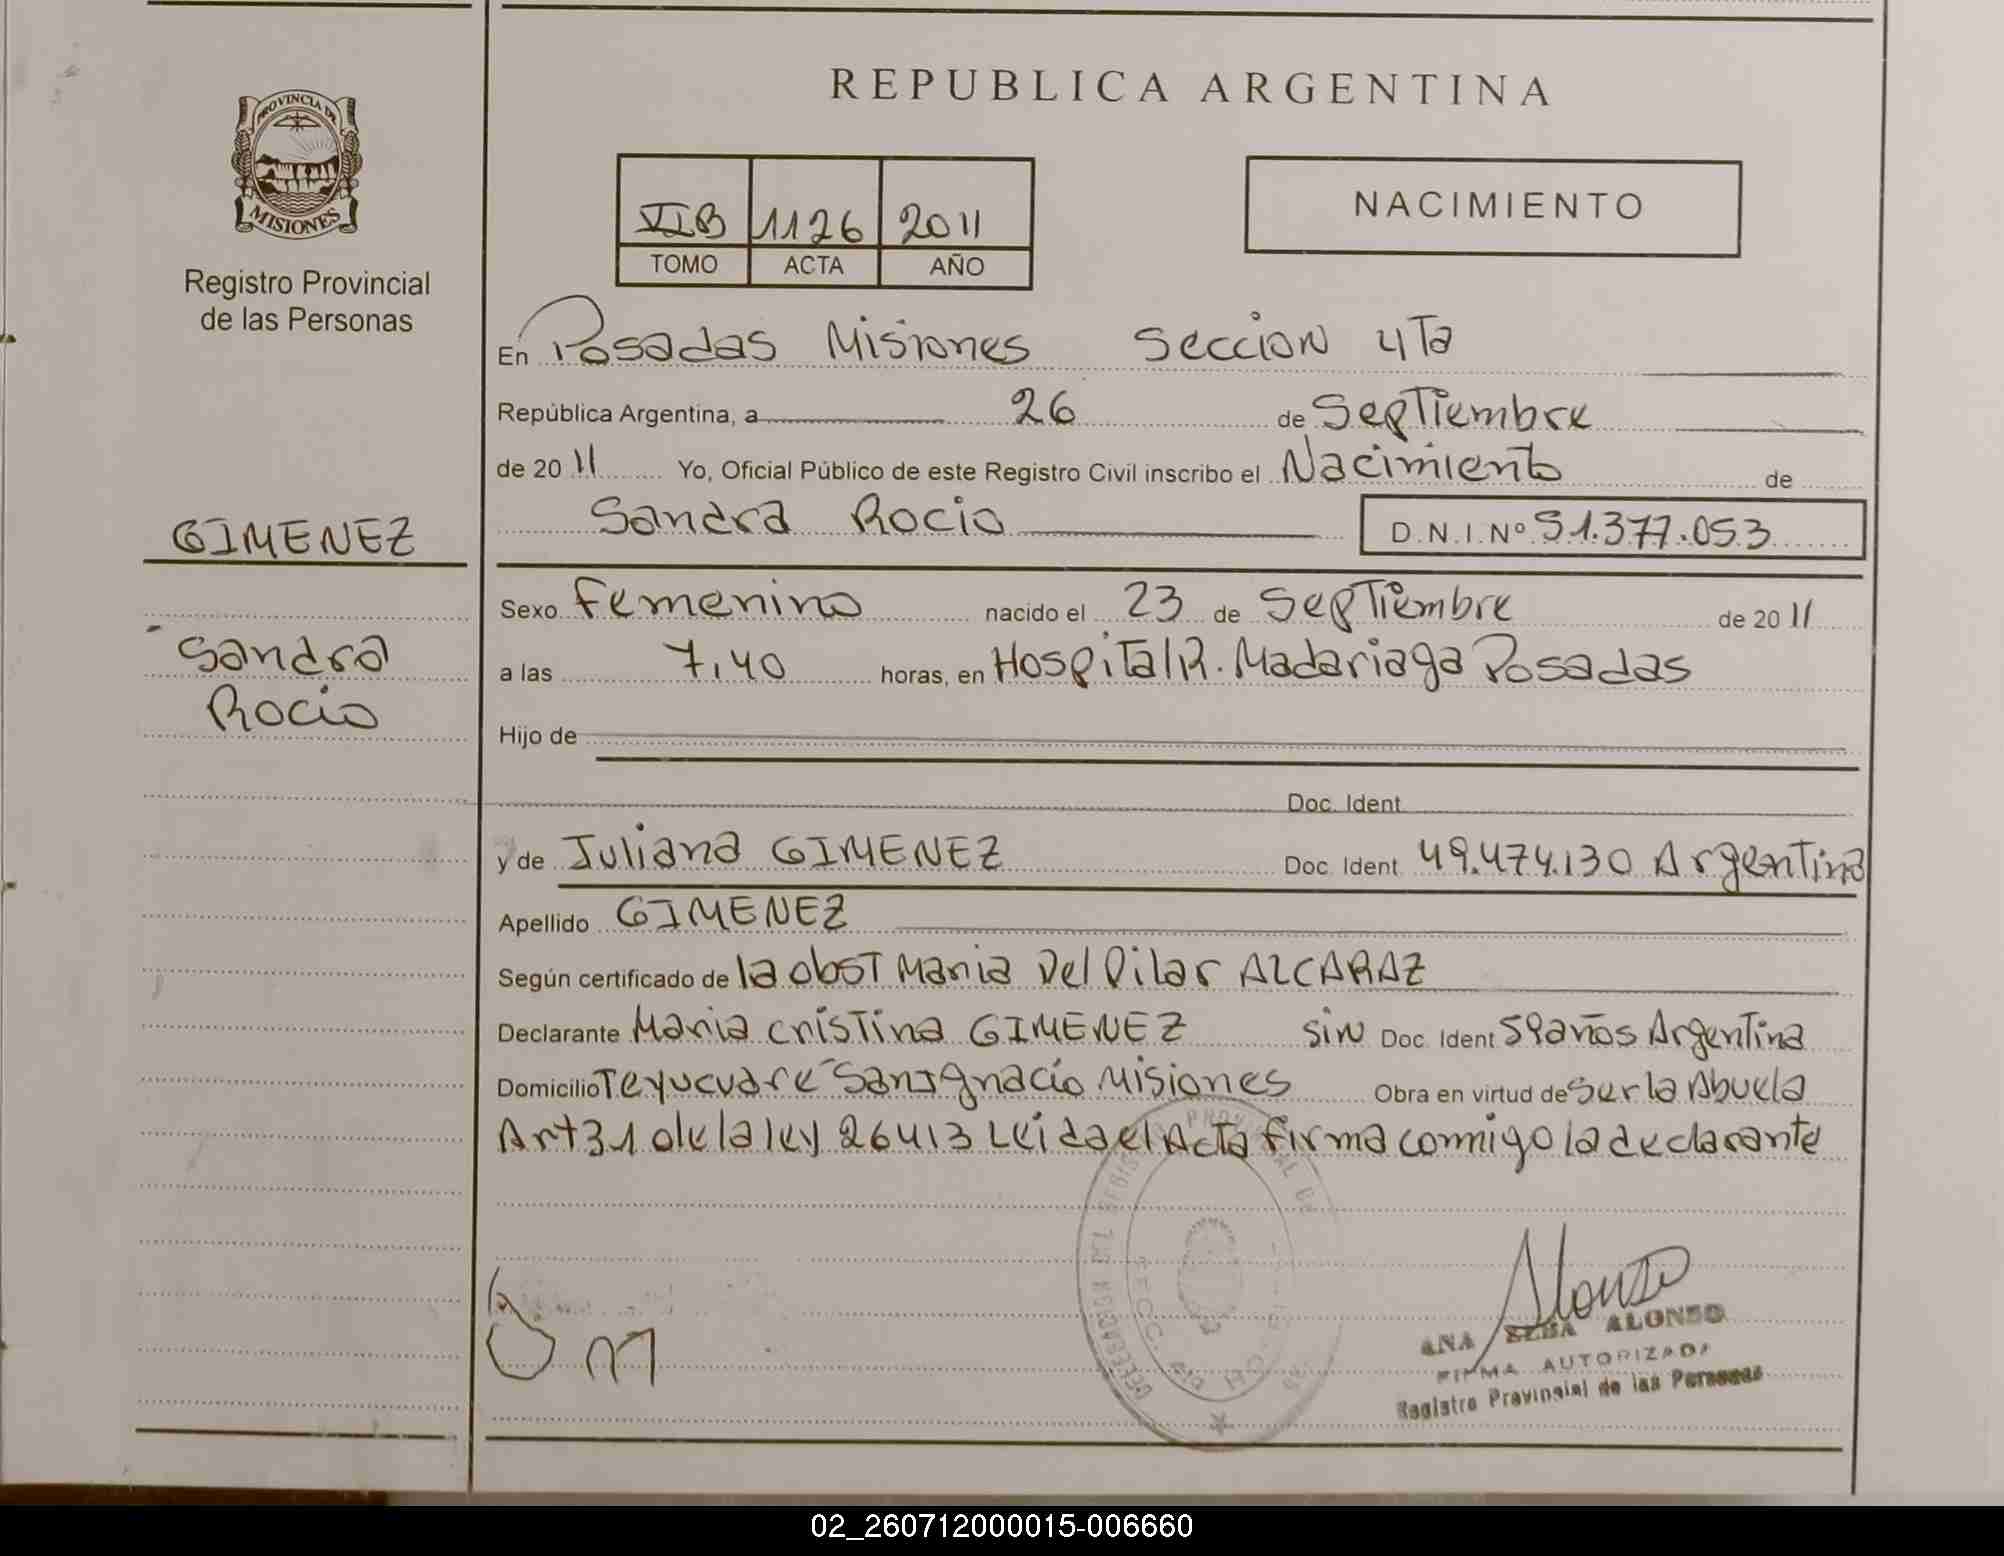 REPUBLICA ARGENTINA
PROVINCIA DE
MISIONES
Registro Provincial
de las Personas
VIB 1126 2011
TOMO ACTA AÑO
NACIMIENTO
En Posadas Misiones Seccion 4Ta
República Argentina, a 26 de Septiembre
de 20 11 Yo, Oficial Público de este Registro Civil inscribo el Nacimiento de
Sandra Rocio D.N.I. Nº 51.377.053
GIMENEZ
Sandra
Rocio
Sexo Femenino nacido el 23 de Septiembre de 20 11
a las 7,40 horas, en Hospital R. Madariaga Posadas
Hijo de
Doc. Ident
y de Juliana GIMENEZ Doc. Ident 49.474.130 Argentina
Apellido GIMENEZ
Según certificado de la obst Maria Del Pilar ALCARAZ
Declarante Maria Cristina GIMENEZ sin Doc. Ident 59años Argentina
Domicilio Teyucuare San Ignacio Misiones Obra en virtud de ser la Abuela
Art 31 de la ley 26413 Leida el Acta firma conmigo la declarante
Alonso
ANA ELBA ALONSO
FIRMA AUTORIZADA
Registro Provincial de las Personas
02_260712000015-006660